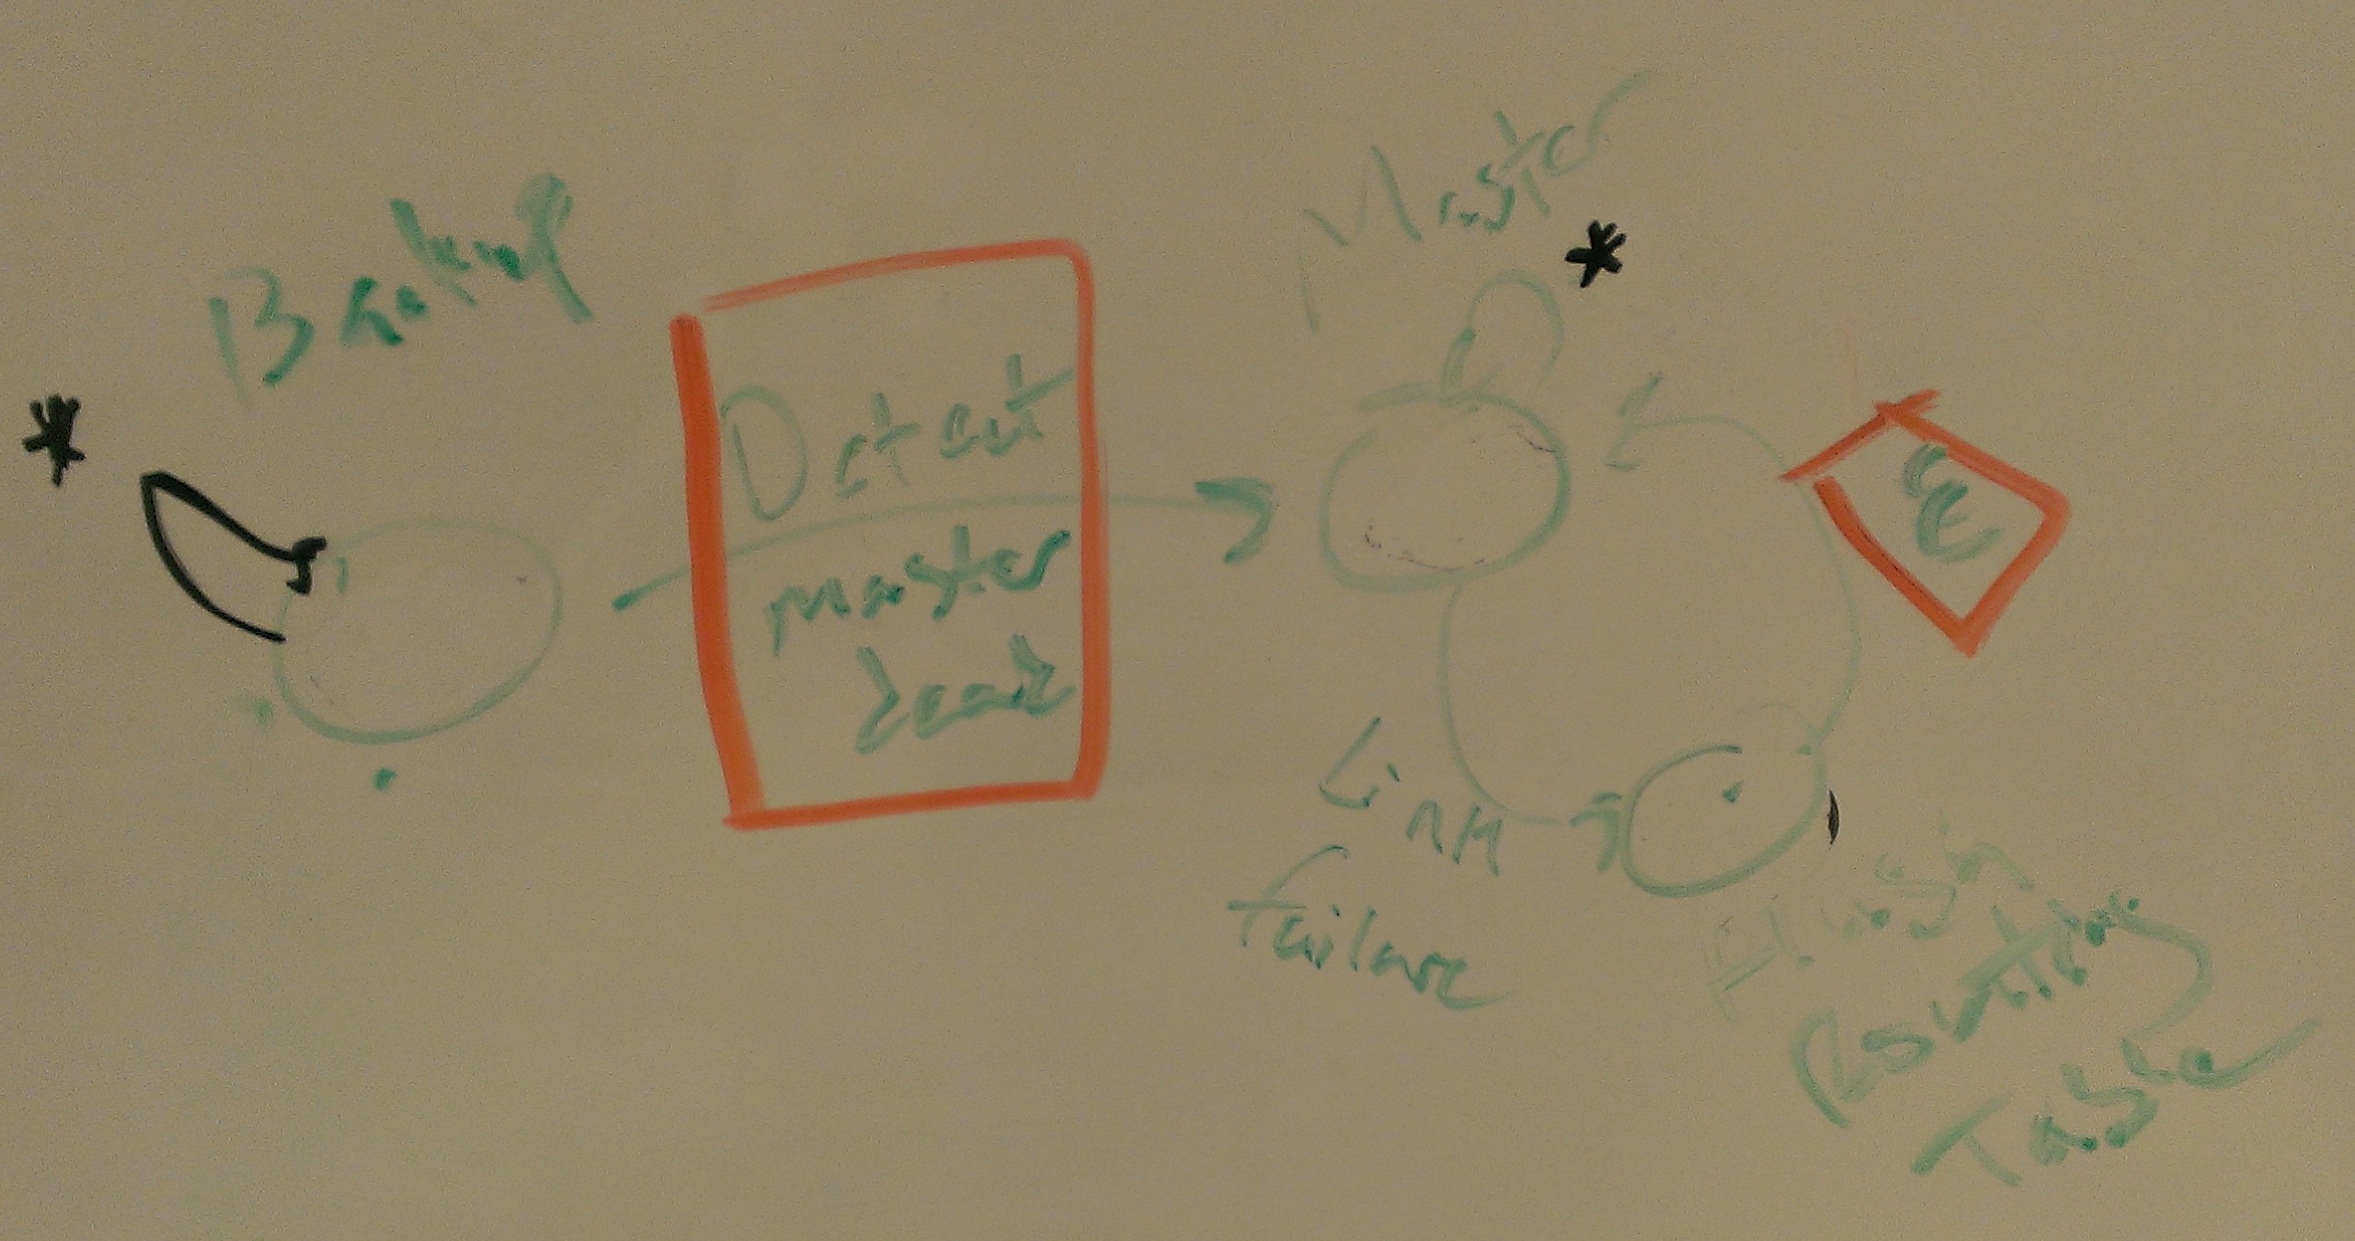 Backup
*
Detect
master
dead
Master
*
ε
Link
failure
Flush
Routing
Table